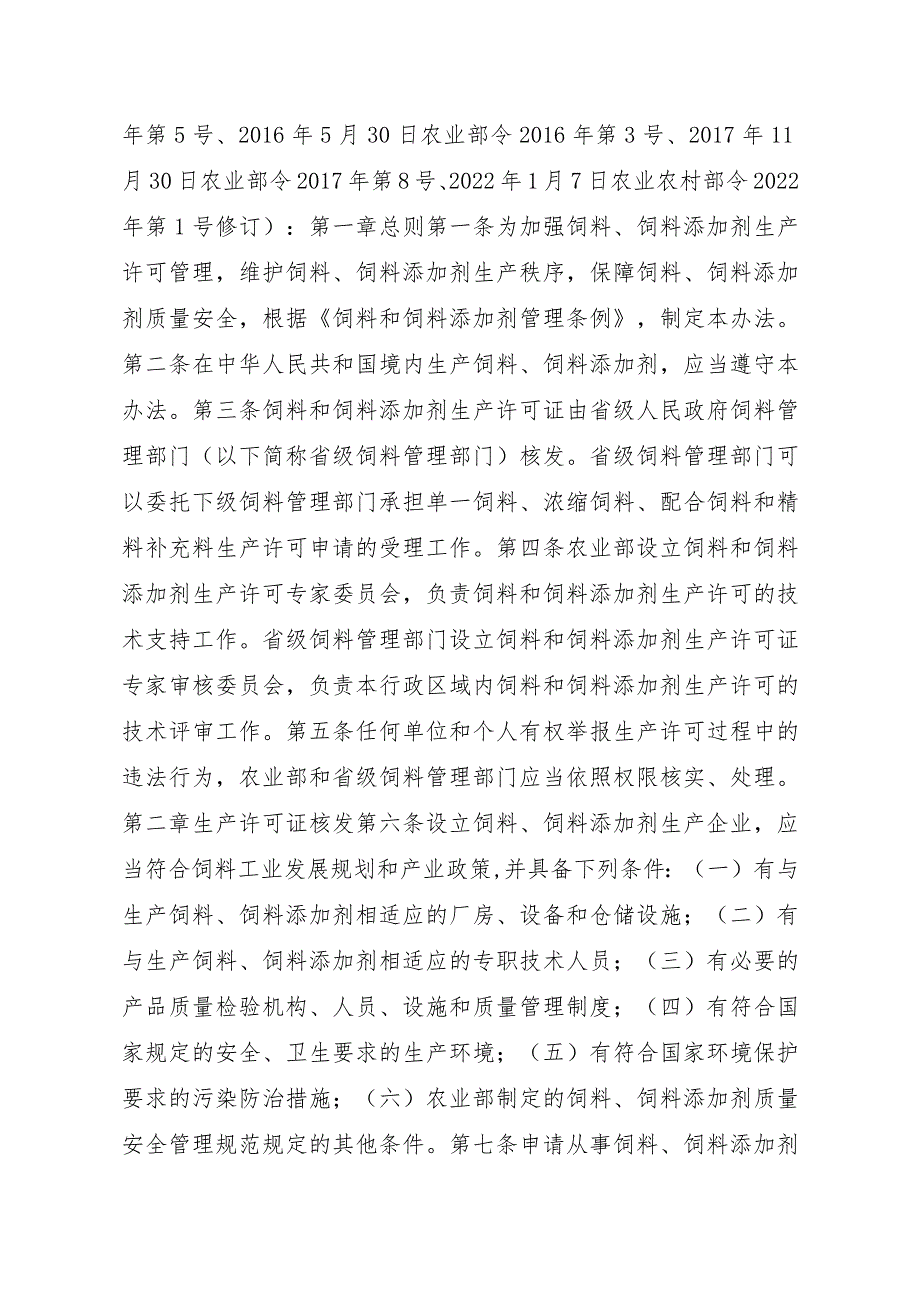 年第 5 号、2016 年 5 月 30 日农业部令 2016 年第 3 号、2017 年 11
月 30 日农业部令 2017 年第 8 号、2022 年 1 月 7 日农业农村部令 2022
年第 1 号修订）：第一章总则第一条为加强饲料、饲料添加剂生产
许可管理，维护饲料、饲料添加剂生产秩序，保障饲料、饲料添加
剂质量安全，根据《饲料和饲料添加剂管理条例》，制定本办法。
第二条在中华人民共和国境内生产饲料、饲料添加剂，应当遵守本
办法。第三条饲料和饲料添加剂生产许可证由省级人民政府饲料管
理部门（以下简称省级饲料管理部门）核发。省级饲料管理部门可
以委托下级饲料管理部门承担单一饲料、浓缩饲料、配合饲料和精
料补充料生产许可申请的受理工作。第四条农业部设立饲料和饲料
添加剂生产许可专家委员会，负责饲料和饲料添加剂生产许可的技
术支持工作。省级饲料管理部门设立饲料和饲料添加剂生产许可证
专家审核委员会，负责本行政区域内饲料和饲料添加剂生产许可的
技术评审工作。第五条任何单位和个人有权举报生产许可过程中的
违法行为，农业部和省级饲料管理部门应当依照权限核实、处理。
第二章生产许可证核发第六条设立饲料、饲料添加剂生产企业，应
当符合饲料工业发展规划和产业政策,并具备下列条件：（一）有与
生产饲料、饲料添加剂相适应的厂房、设备和仓储设施；（二）有
与生产饲料、饲料添加剂相适应的专职技术人员；（三）有必要的
产品质量检验机构、人员、设施和质量管理制度；（四）有符合国
家规定的安全、卫生要求的生产环境；（五）有符合国家环境保护
要求的污染防治措施；（六）农业部制定的饲料、饲料添加剂质量
安全管理规范规定的其他条件。第七条申请从事饲料、饲料添加剂